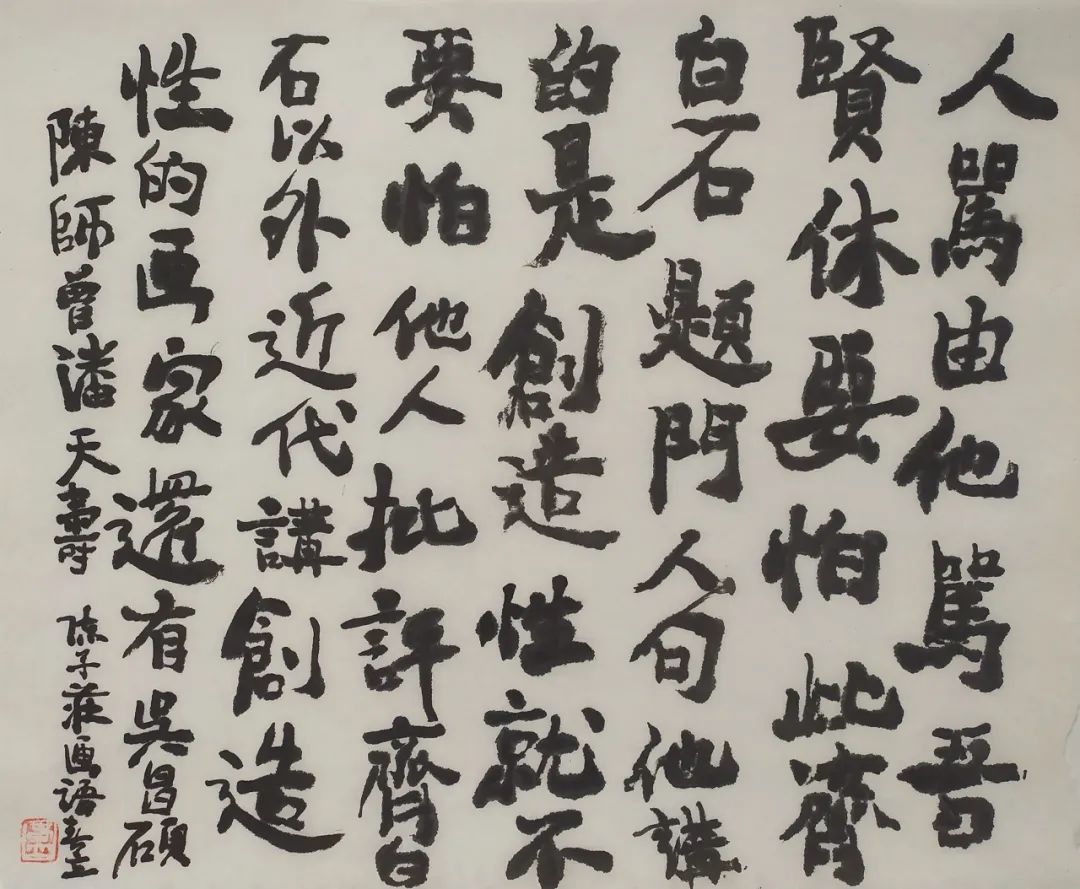 人罵由他罵晋
賢休要怕此齊
白石題門人句他講
的是創造性就不
要怕他人批評齊白
石以外近代講創造
性的画家還有吳昌碩
陳師曾潘天壽 陳子莊画語